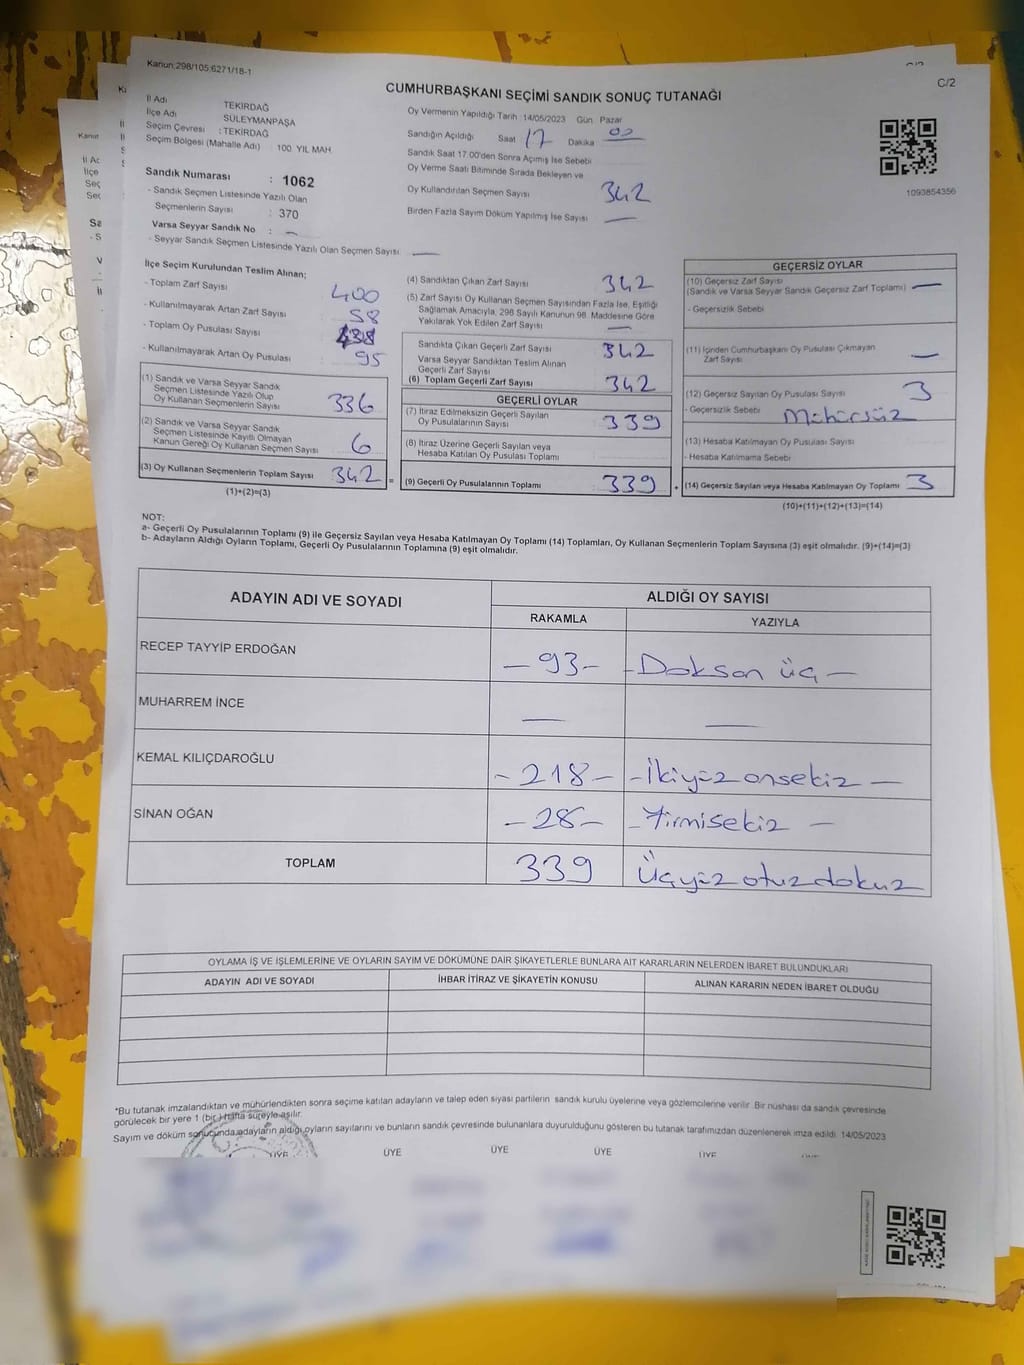 Kanun;298/105;6271/18-1
C/2
CUMHURBAŞKANI SEÇİMİ SANDIK SONUÇ TUTANAĞI
İl Adı TEKİRDAĞ
İlçe Adı SÜLEYMANPAŞA
Seçim Çevresi : TEKİRDAĞ
Seçim Bölgesi (Mahalle Adı) 100. YIL MAH.
Sandık Numarası : 1062
- Sandık Seçmen Listesinde Yazılı Olan
Seçmenlerin Sayısı : 370
Varsa Seyyar Sandık No : —
- Seyyar Sandık Seçmen Listesinde Yazılı Olan Seçmen Sayısı: —
Oy Vermenin Yapıldığı Tarih :14/05/2023 Gün: Pazar
Sandığın Açıldığı Saat 17 Dakika 00
Sandık Saat 17.00'den Sonra Açımış İse Sebebi
Oy Verme Saati Bitiminde Sırada Bekleyen ve
Oy Kullandırılan Seçmen Sayısı 342
Birden Fazla Sayım Döküm Yapılmış İse Sayısı —
1093854356
İlçe Seçim Kurulundan Teslim Alınan;
- Toplam Zarf Sayısı 400
- Kullanılmayarak Artan Zarf Sayısı 58
- Toplam Oy Pusulası Sayısı
- Kullanılmayarak Artan Oy Pusulası 95
(1) Sandık ve Varsa Seyyar Sandık
Seçmen Listesinde Yazılı Olup
Oy Kullanan Seçmenlerin Sayısı 336
(2) Sandık ve Varsa Seyyar Sandık
Seçmen Listesinde Kayıtlı Olmayan
Kanun Gereği Oy Kullanan Seçmen Sayısı 6
(3) Oy Kullanan Seçmenlerin Toplam Sayısı 342 =
(1)+(2)=(3)
(4) Sandıktan Çıkan Zarf Sayısı 342
(5) Zarf Sayısı Oy Kullanan Seçmen Sayısından Fazla İse, Eşitliği
Sağlamak Amacıyla, 298 Sayılı Kanunun 98. Maddesine Göre
Yakılarak Yok Edilen Zarf Sayısı —
Sandıkta Çıkan Geçerli Zarf Sayısı 342
Varsa Seyyar Sandıktan Teslim Alınan
Geçerli Zarf Sayısı
(6) Toplam Geçerli Zarf Sayısı 342
GEÇERLİ OYLAR
(7) İtiraz Edilmeksizin Geçerli Sayılan
Oy Pusulalarının Sayısı 339
(8) İtiraz Üzerine Geçerli Sayılan veya
Hesaba Katılan Oy Pusulası Toplamı
(9) Geçerli Oy Pusulalarının Toplamı 339 +
GEÇERSİZ OYLAR
(10) Geçersiz Zarf Sayısı
(Sandık ve Varsa Seyyar Sandık Geçersiz Zarf Toplamı) —
- Geçersizlik Sebebi
(11) İçinden Cumhurbaşkanı Oy Pusulası Çıkmayan
Zarf Sayısı —
(12) Geçersiz Sayılan Oy Pusulası Sayısı 3
- Geçersizlik Sebebi Mühürsüz
(13) Hesaba Katılmayan Oy Pusulası Sayısı
- Hesaba Katılmama Sebebi
(14) Geçersiz Sayılan veya Hesaba Katılmayan Oy Toplamı 3
(10)+(11)+(12)+(13)=(14)
NOT:
a- Geçerli Oy Pusulalarının Toplamı (9) ile Geçersiz Sayılan veya Hesaba Katılmayan Oy Toplamı (14) Toplamları, Oy Kullanan Seçmenlerin Toplam Sayısına (3) eşit olmalıdır. (9)+(14)=(3)
b- Adayların Aldığı Oyların Toplamı, Geçerli Oy Pusulalarının Toplamına (9) eşit olmalıdır.
ADAYIN ADI VE SOYADI
ALDIĞI OY SAYISI
RAKAMLA YAZIYLA
RECEP TAYYİP ERDOĞAN — 93 — — Doksan üç —
MUHARREM İNCE — —
KEMAL KILIÇDAROĞLU - 218 - - İkiyüz onsekiz —
SİNAN OĞAN - 28 - - Yirmisekiz —
TOPLAM 339 Üçyüz otuzdokuz
OYLAMA İŞ VE İŞLEMLERİNE VE OYLARIN SAYIM VE DÖKÜMÜNE DAİR ŞİKAYETLERLE BUNLARA AİT KARARLARIN NELERDEN İBARET BULUNDUKLARI
ADAYIN ADI VE SOYADI İHBAR İTİRAZ VE ŞİKAYETİN KONUSU ALINAN KARARIN NEDEN İBARET OLDUĞU
*Bu tutanak imzalandıktan ve mühürlendikten sonra seçime katılan adayların ve talep eden siyasi partilerin sandık kurulu üyelerine veya gözlemcilerine verilir. Bir nüshası da sandık çevresinde
görülecek bir yere 1 (bir ) hafta süreyle asılır.
Sayım ve döküm sonucunda adayların aldığı oyların sayılarını ve bunların sandık çevresinde bulunanlara duyurulduğunu gösteren bu tutanak tarafımızdan düzenlenerek imza edildi. 14/05/2023
ÜYE ÜYE ÜYE ÜYE ÜYE